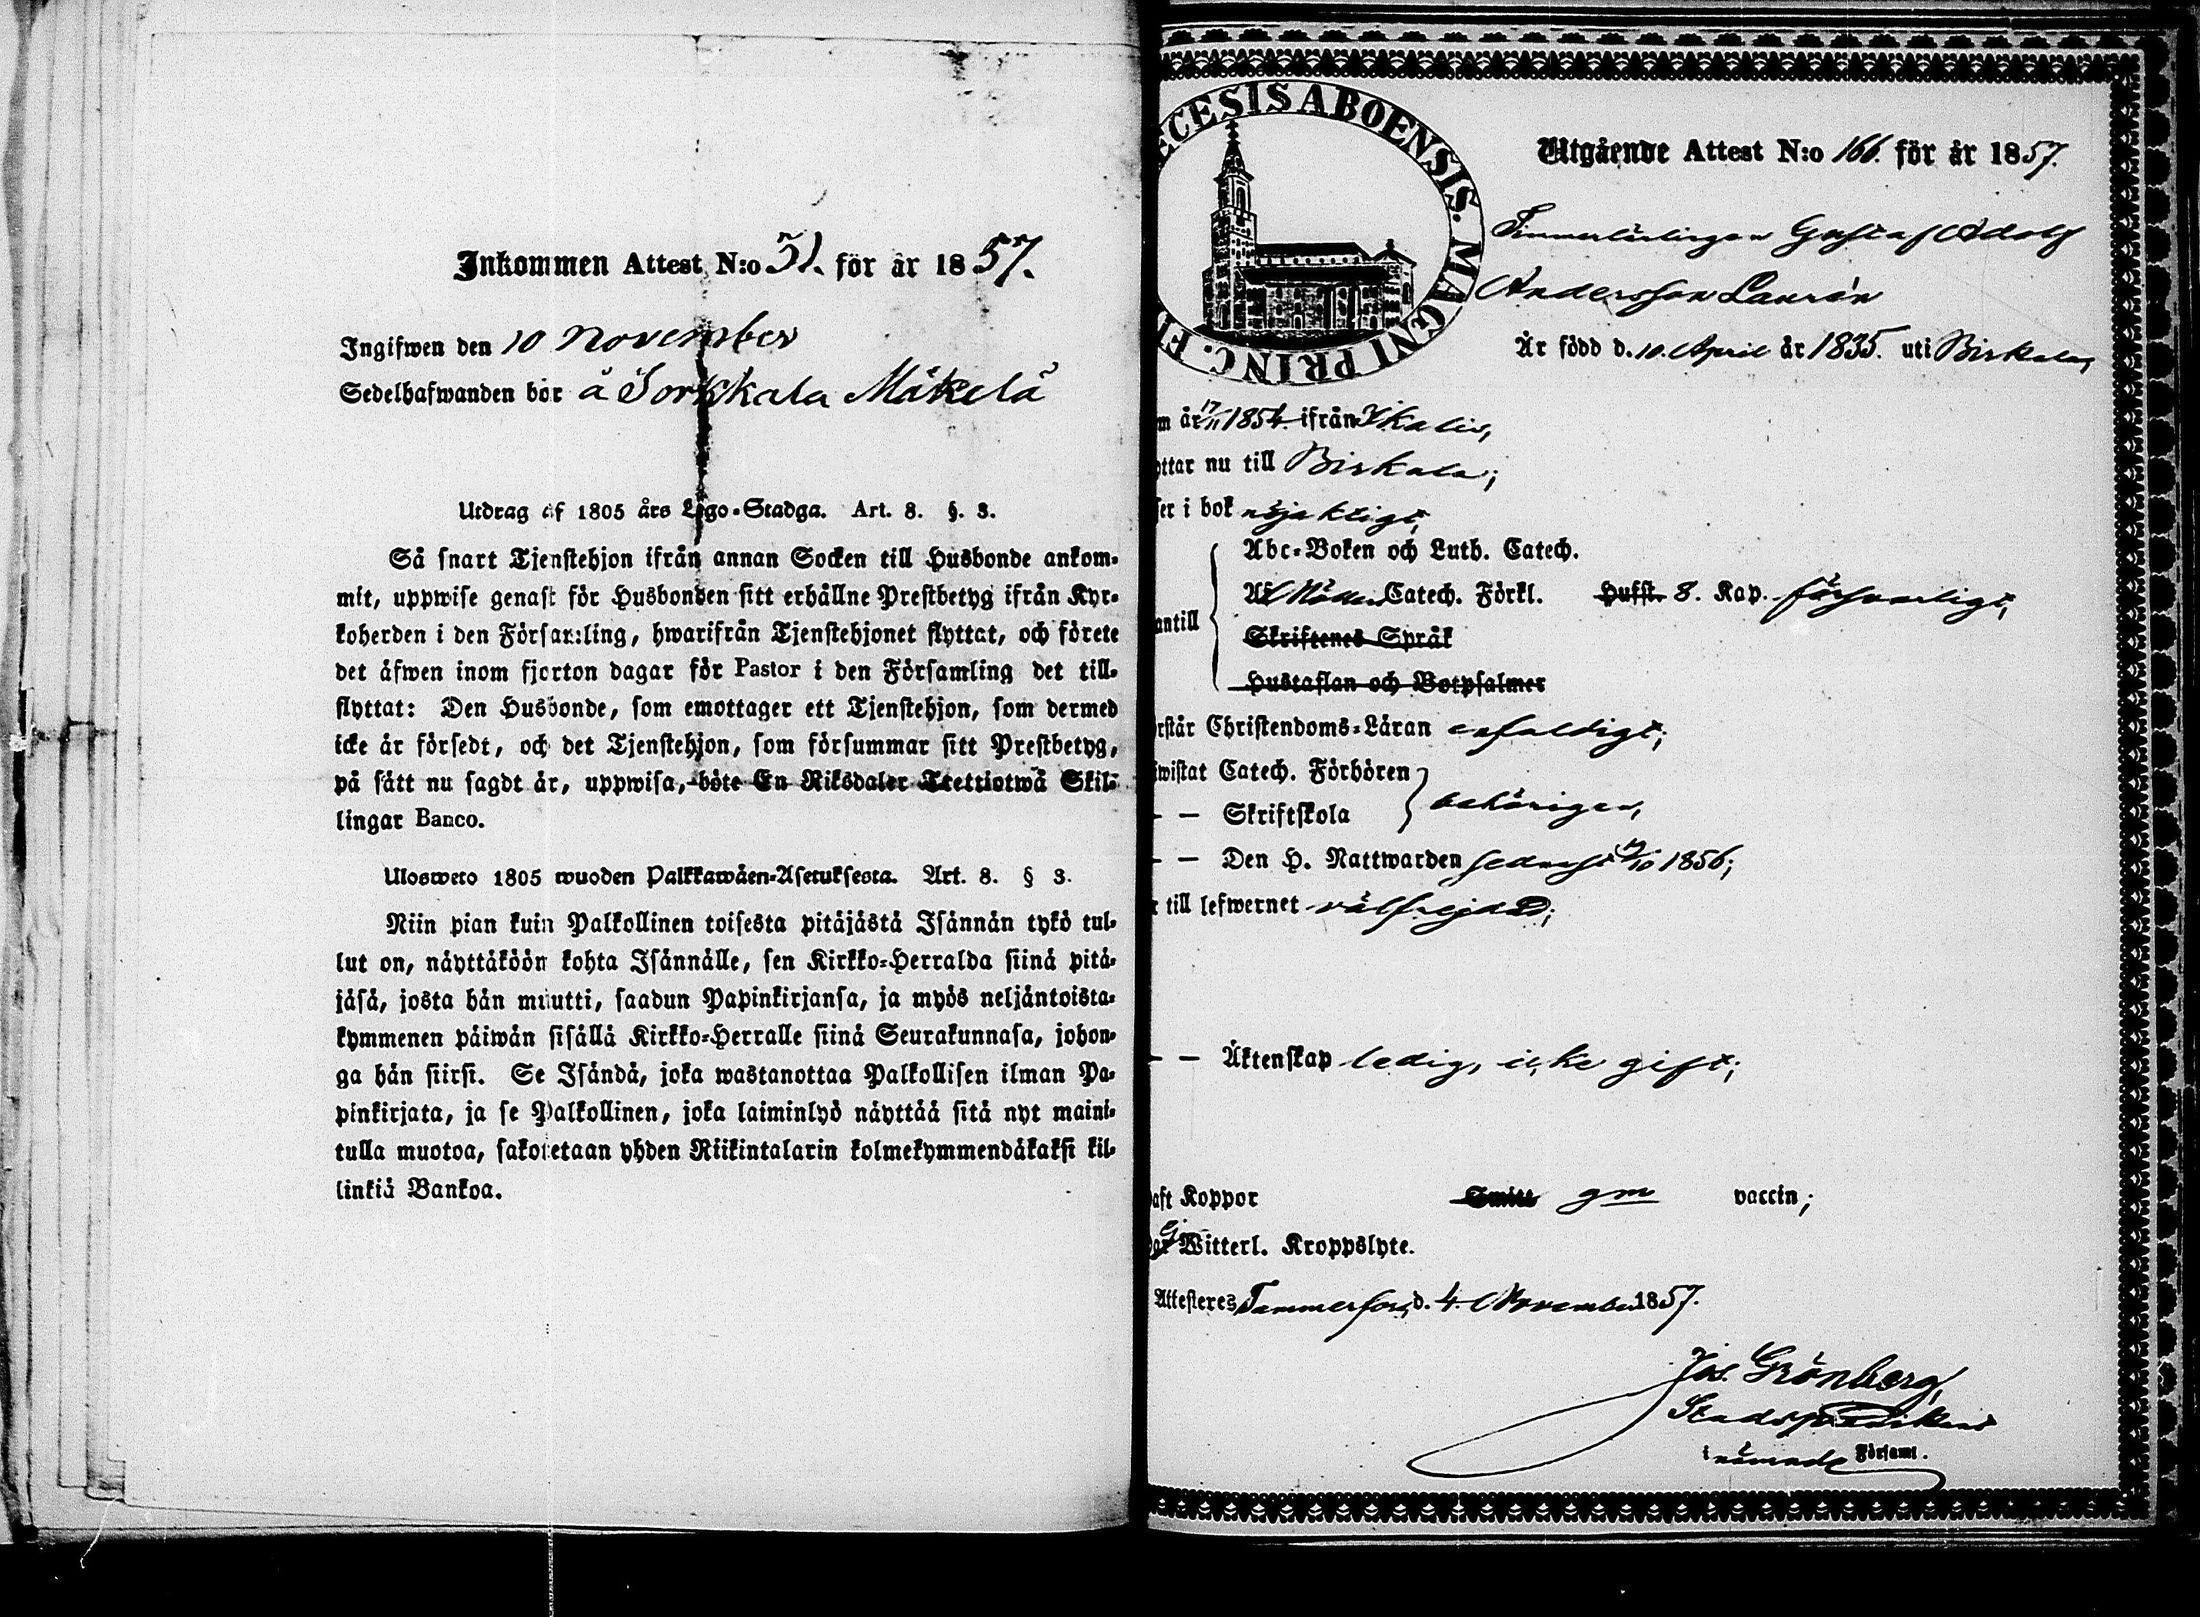 Inkommen Attest N:o 51. för år 1857.
Ingifwen den 10 November
Sedelhafwanden bor å Sorkkala Mäkelä
Utdrag af 1805 års Lego-Stadga. Art. 8. §. 3.
Så snart Tjenstehjon ifrån annan Socken till Husbonde ankom-
mit, uppwise genast för Husbonden sitt erhållne Prestbetyg ifrån Kyr-
koherden i den Församling, hwarifrån Tjenstehjonet flyttat, och förete
det äfwen inom fjorton dagar för Pastor i den Församling det till-
flyttat: Den Husbonde, som emottager ett Tjenstehjon, som dermed
icke är försedt, och det Tjenstehjon, som försummar sitt Prestbetyg,
på sätt nu sagdt är, uppwisa, böte En Riksdaler Trettiotwå Skil-
lingar Banco.
Ulosweto 1805 wuoden Palkkawäen-Asetuksesta. Art. 8. § 3.
Niin pian kuin Palkollinen toisesta pitäjästä Isännän tykö tul-
lut on, näyttäköön kohta Isännälle, sen Kirkko-Herralda siinä pitä-
jäsä, josta hän muutti, saadun Papinkirjansa, ja myös neljäntoista-
kymmenen päiwän sisällä Kirkko-Herralle siinä Seurakunnasa, johon-
ga hän siirsi. Se Isändä, joka wastanottaa Palkollisen ilman Pa-
pinkirjata, ja se Palkollinen, joka laiminlyö näyttää sitä nyt maini-
tulla muotoa, sakotetaan yhden Riikintalarin kolmekymmendäkaksi kil-
linkiä Bankoa.
ECESIS ABOENSIS. MAGNI PRINC. FI
Utgående Attest N:o 166. för år 1857.
Timmerlärlingen Gustaf Adolf
Andersson Laurén
Är född d. 10. April år 1835. uti Birkala,
m år 17/11 1854 ifrån Ikalis,
ttar nu till Birkala;
ser i bok nöjaktigt,
Abc-Boken och Luth. Catech.
antill Catech. Förkl. Hufst. 8. Kap. försvarligt,
Skriftenes Språk
Hustaflan och Botpsalmer
rstår Christendoms-Läran enfaldigt;
iwistat Catech. Förhören
— — Skriftskola behörigen,
— — Den H. Nattwarden sednast 1856;
r till lefwernet välfrejdad;
— — Äktenskap ledig, icke gift;
aft Koppor Smitt gm vaccin;
Witterl. Kroppslyte.
Attesteres Tammerfors, d. 4. November 1857.
Jos. Grönberg,
Stadspredikant
i nämnde Församl.